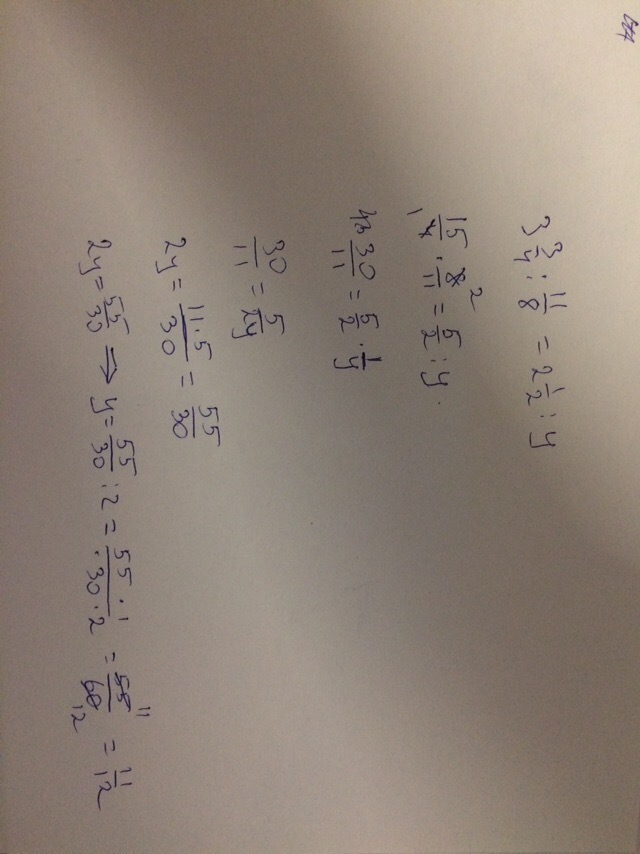 3 3/4 : 11/8 = 2 1/2 : y
15/4 · 8/11 = 5/2 : y 1 2
30/11 = 5/2 · 1/y
30/11 = 5/2y
2y = 11·5/30 = 55/30
2y = 55/30 ⇒ y = 55/30 : 2 = 55·1/30·2 = 55/60 = 11/12 11 12